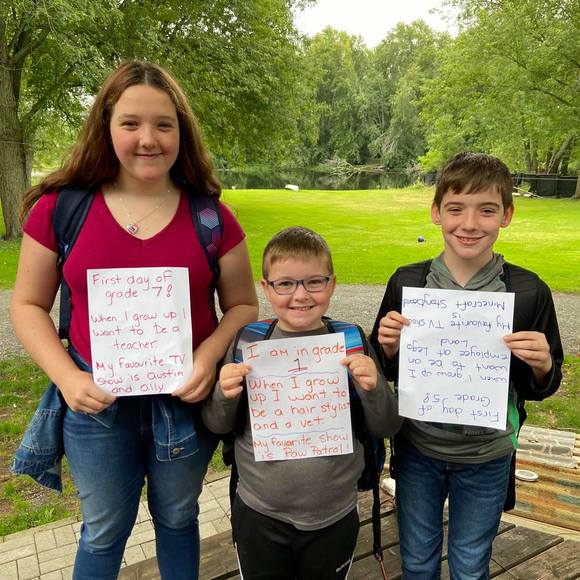 First day of
grade 7!
When I grow up I
want to be a
teacher
My favourite TV
show is Austin
and Ally
I am in grade
1
When I grow
up I want to
be a hair stylist
and a vet
My favorite show
is Paw Patrol
First day of
Grade 5!
When I grow up I
want to be an
Employee at Lego
Land
My favourite TV show
is
Minecraft